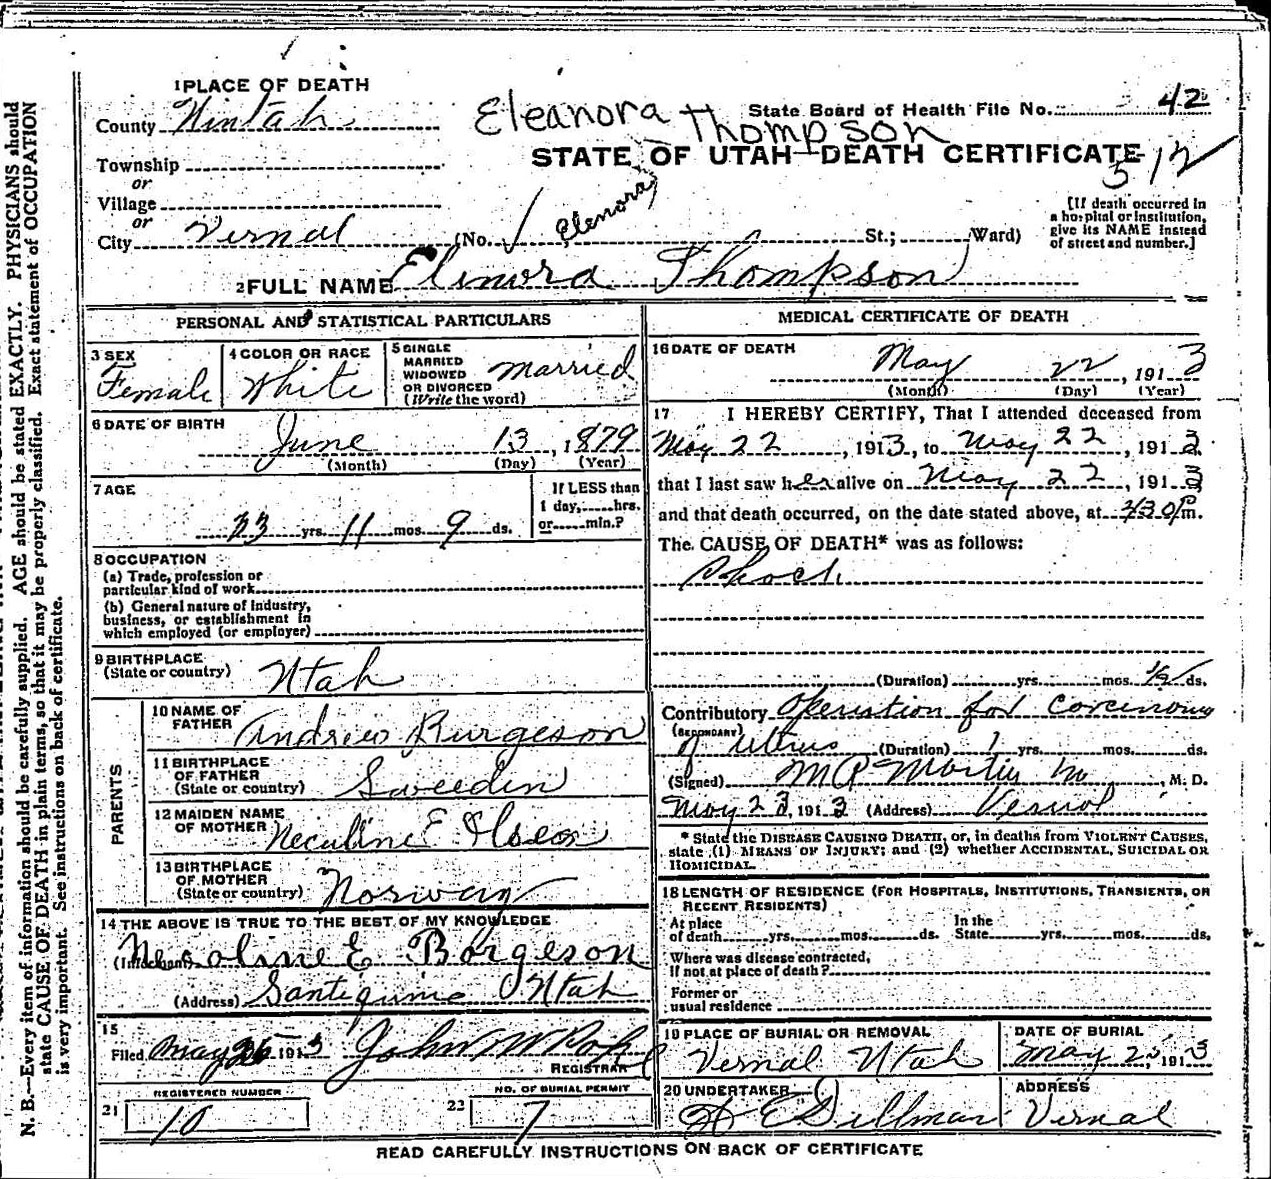 1 PLACE OF DEATH
County Uintah
Township
or
Village
or
City Vernal (No. St.; Ward)
Eleanora Thompson
State Board of Health File No. 42
STATE OF UTAH—DEATH CERTIFICATE
512
[If death occurred in a hospital or institution, give its NAME instead of street and number.]
(Elenora)
2 FULL NAME Elinora Thompson
PERSONAL AND STATISTICAL PARTICULARS
3 SEX Female
4 COLOR OR RACE White
5 SINGLE MARRIED WIDOWED OR DIVORCED (Write the word) married
6 DATE OF BIRTH June 13, 1879
(Month) (Day) (Year)
7 AGE 33 yrs. 11 mos. 9 ds.
If LESS than 1 day, hrs. or min.?
8 OCCUPATION
(a) Trade, profession or particular kind of work
(b) General nature of industry, business, or establishment in which employed (or employer)
9 BIRTHPLACE (State or country) Utah
PARENTS
10 NAME OF FATHER Andrew Burgeson
11 BIRTHPLACE OF FATHER (State or country) Sweeden
12 MAIDEN NAME OF MOTHER E
13 BIRTHPLACE OF MOTHER (State or country) Norway
14 THE ABOVE IS TRUE TO THE BEST OF MY KNOWLEDGE
(Informant) Necoline E Borgeson
(Address) Utah
15
Filed May 1913 John
REGISTRAR
REGISTERED NUMBER
21 10
NO. OF BURIAL PERMIT
22 7
MEDICAL CERTIFICATE OF DEATH
16 DATE OF DEATH May 22, 1913
(Month) (Day) (Year)
17 I HEREBY CERTIFY, That I attended deceased from
May 22, 1913, to May 22, 1913
that I last saw her alive on May 22, 1913
and that death occurred, on the date stated above, at 430 Pm.
The CAUSE OF DEATH* was as follows:
Shock
(Duration) yrs. mos. 1/2 ds.
Contributory Operation for Carcinoma
(SECONDARY)
of Uterus (Duration) 1 yrs. mos. ds.
(Signed) , M. D.
May 23, 1913 (Address) Vernal
* State the DISEASE CAUSING DEATH, or, in deaths from VIOLENT CAUSES, state (1) MEANS OF INJURY; and (2) whether ACCIDENTAL, SUICIDAL OR HOMICIDAL.
18 LENGTH OF RESIDENCE (FOR HOSPITALS, INSTITUTIONS, TRANSIENTS, OR RECENT RESIDENTS)
At place of death yrs. mos. ds. In the State yrs. mos. ds.
Where was disease contracted, If not at place of death?
Former or usual residence
19 PLACE OF BURIAL OR REMOVAL Vernal Utah
DATE OF BURIAL May 1913
20 UNDERTAKER Gillman
ADDRESS Vernal
READ CAREFULLY INSTRUCTIONS ON BACK OF CERTIFICATE
N. B.—Every item of information should be carefully supplied. AGE should be stated EXACTLY. PHYSICIANS should
state CAUSE OF DEATH in plain terms, so that it may be properly classified. Exact statement of OCCUPATION
is very important. See instructions on back of certificate.